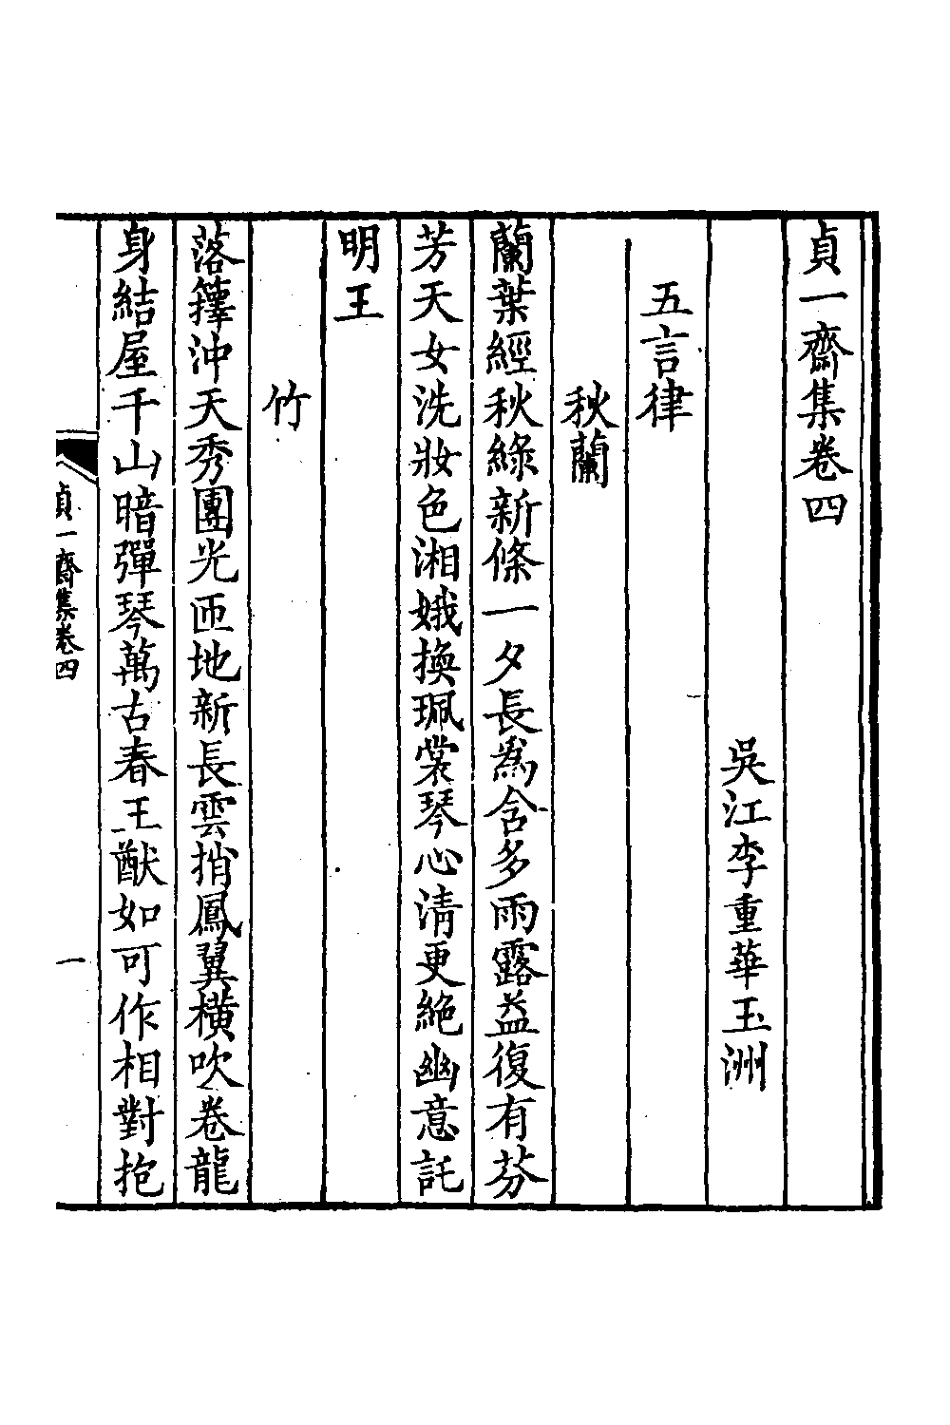 貞一齋集卷四
吳江李重華玉洲
五言律
秋蘭
蘭葉經秋綠新條一夕長爲含多雨露益復有芬
芳天女洗妝色湘娥換珮裳琴心清更絕幽意託
明王
竹
落籜沖天秀團光匝地新長雲捎鳳翼橫吹卷龍
身結屋千山暗彈琴萬古春王猷如可作相對抱
貞一齋集卷四
一